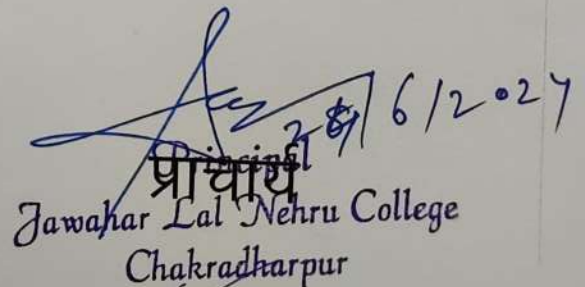 /6/2024
प्राचार्य
Jawahar Lal Nehru College
Chakradharpur